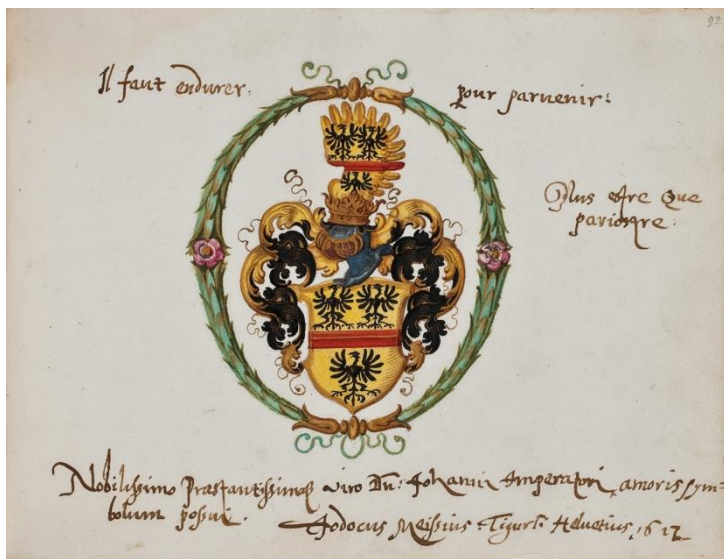 92
Il faut endurer: pour parvenir:
Plus estre que
paroistre:
Nobilissimo Præstantissimoq viro Dn: Johanni Imperatori, amoris sym-
bolum posui. Jodocus Meissius Tigur: Helvetius, 1612